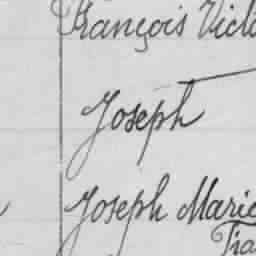 François Victo
Joseph
Joseph Marie